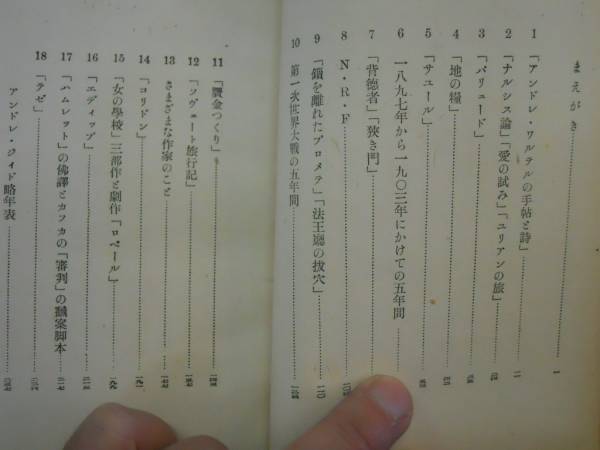 まえがき
1 「アンドレ・ワルテルの手帖と詩」 一
2 「ナルシス論」「愛の試み」「ユリアンの旅」
3 「パリュード」
4 「地の糧」
5 「サユール」
6 一八九七年から一九〇三年にかけての五年間
7 「背德者」「狹き門」
8 N・R・F
9 「鎖を離れたプロメテ」「法王廳の拔穴」
10 第一次世界大戰の五年間
11 「贋金つくり」
12 「ソヴェート旅行記」
13 さまざまな作家のこと
14 「コリドン」
15 「女の學校」三部作と劇作「ロベール」
16 「エディップ」
17 「ハムレット」の佛譯とカフカの「審判」の飜案脚本
18 「テゼ」
アンドレ・ジイド略年表